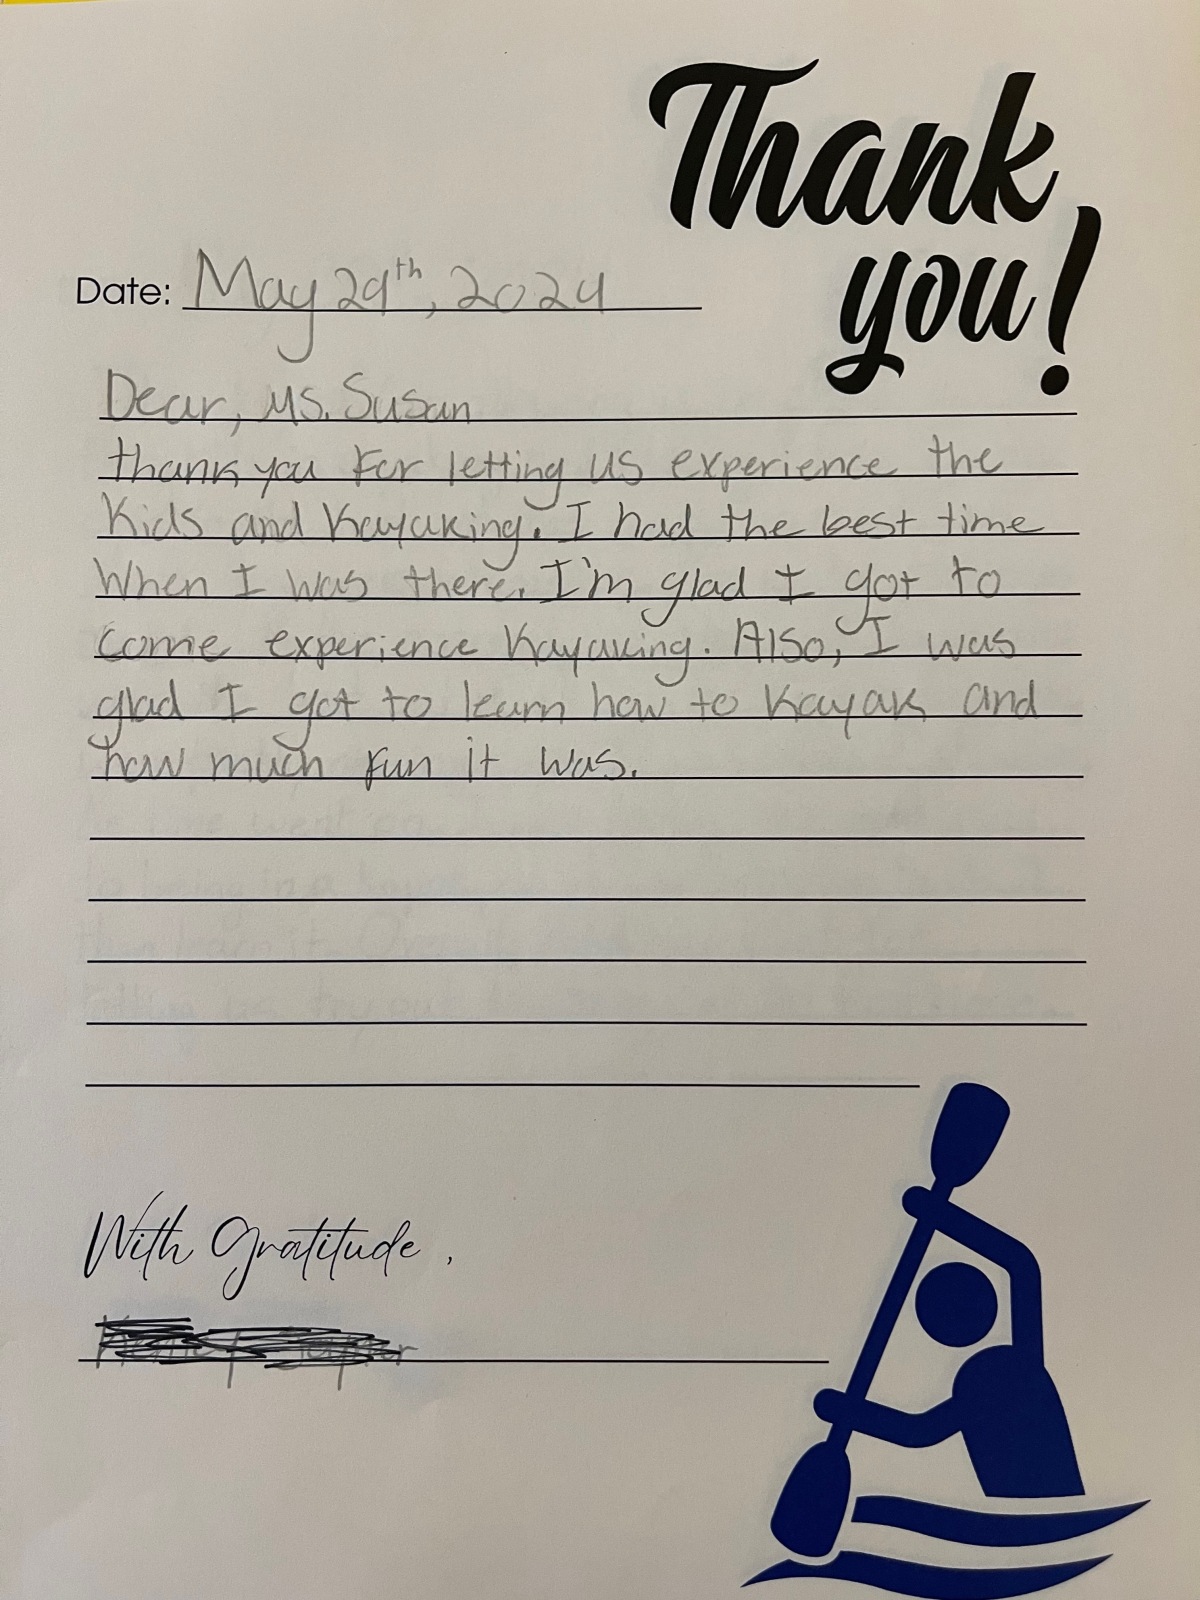 Thank
you!
Date: May 29th, 2024
Dear, Ms. Susan
thank you For letting us experience the
Kids and Kayaking. I had the best time
When I was there. I'm glad I got to
come experience Kayaking. Also, I was
glad I got to learn how to Kayak and
how much Fun it was.
With Gratitude,